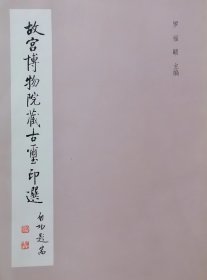 罗福颐主编
故宫博物院藏古玺印選
启功题签